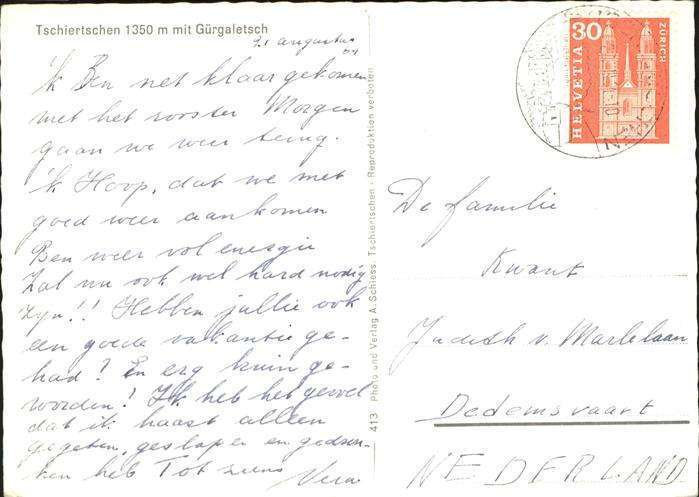 Tschiertschen 1350 m mit Gürgaletsch
21 augustus
'k Ben net klaar gekomen
met het rooster Morgen
gaan we weer terug.
'k Hoop, dat we met
goed weer aankomen
Ben weer vol energie
Zal nu ook wel hard nodig
zyn!! Hebben jullie ook
een goede vakantie ge-
had? En erg bruin ge-
worden? Ik heb het gevoel
dat ik haast alleen
gegeten, geslapen en gedron-
ken heb Tot ziens
Vera
413 Photo und Verlag A. Schiess, Tschiertschen - Reproduktion verboten
HELVETIA 30 ZÜRICH
De familie
Kwant
Judith v. Marlelaan
Dedemsvaart
NEDERLAND